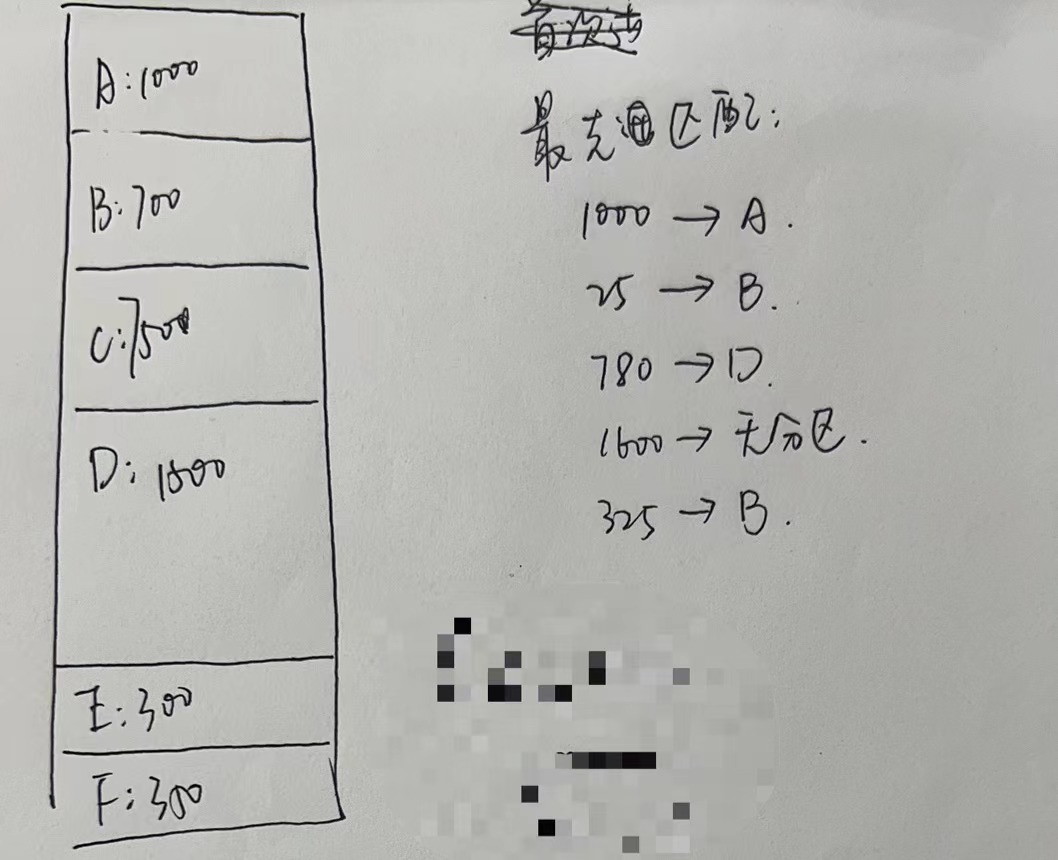 A:1000
B:700
C:7500
D:1800
E:300
F:300
最先适匹配:
1000 → A.
25 → B.
780 → D.
1600 → 无分区.
325 → B.